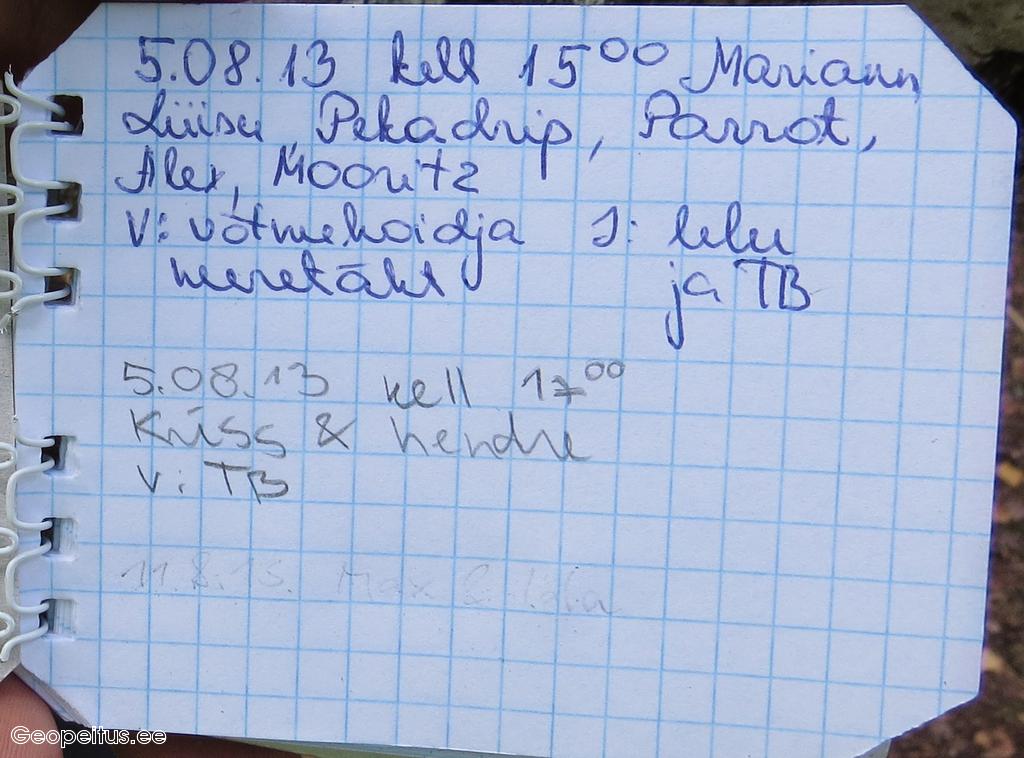 5.08.13 kell 15⁰⁰ Mariann,
Liiisu, Pekadrip, Parrot,
Alex, Mooritz
V: võtmehoidja J: lelu
meretäht ja TB
5.08.13 kell 17⁰⁰
Kriss & hendre
V: TB
Max &
Geopeitus.ee